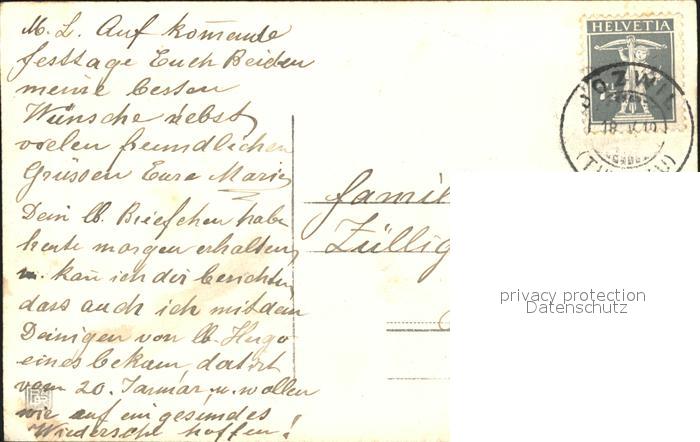 M. L. Auf kom̄ende
Festtage Euch Beiden
meine besten
Wünsche nebst
vielen freundlichen
Grüssen Eure Marie
Dein lb. Briefchen habe
heute morgen erhalten
u. kan̄ ich dir berichten
dass auch ich mit dem
Deinigen von lb. Hugo
eines bekam, datirt
vom 20. Januar u. wollen
wie auf ein gesundes
Wiedersehe hoffen!
HELVETIA
Famil
Züllig
privacy protection
Datenschutz